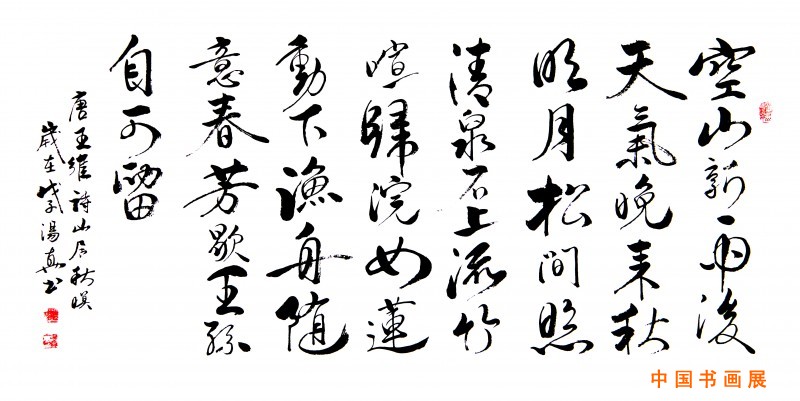 空山新雨後
天氣晚来秋
明月松間照
清泉石上流竹
喧歸浣女蓮
動下漁舟随
意春芳歇王孫
自可留
唐王維詩山居秋暝
歲在戊子湯真书
中国书画展